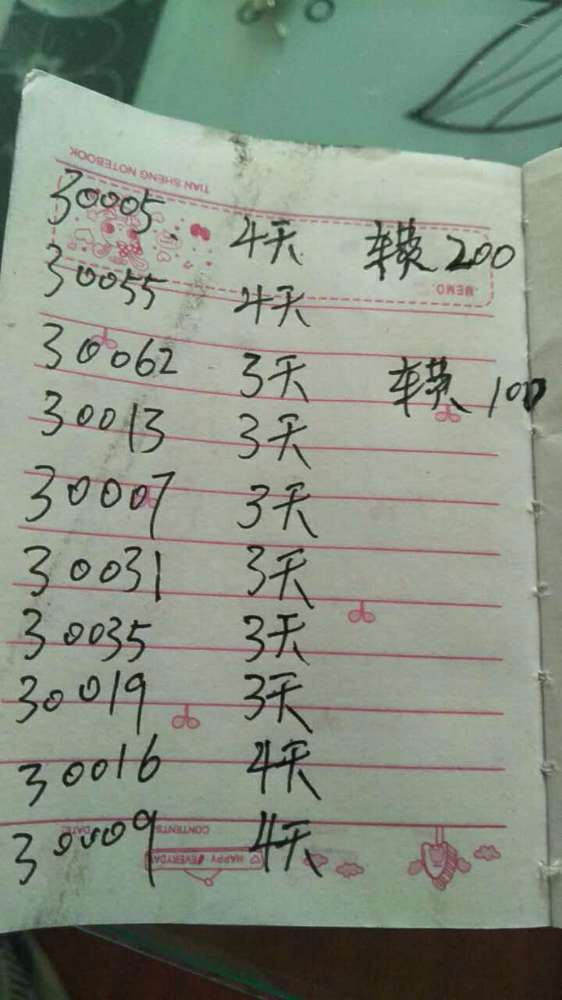 TIAN SHENG NOTEBOOK
30005 4天 车费 200
MEMO
30055 4天
30062 3天 车费 100
30013 3天
30007 3天
30031 3天
30035 3天
30019 3天
30016 4天
CONTENTS DATE
30009 4天
HAPPY EVERYDAY